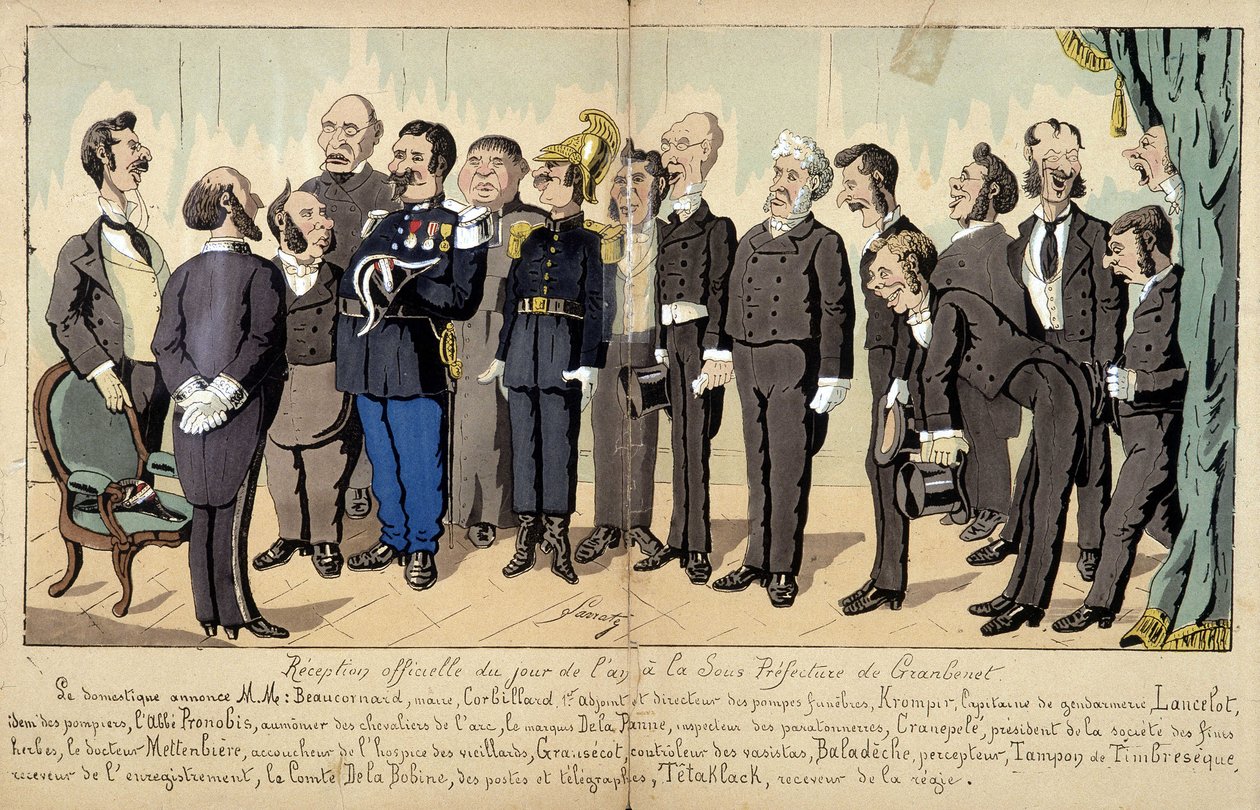 Sarrate
Réception officielle du jour de l'an à la Sous Préfecture de Granbenet.
Le domestique annonce M.M: Beaucornard, maire, Corbillard, 1er adjoint et directeur des pompes funèbres, Krompir, Capitaine de gendarmerie, Lancelot,
idem des pompiers, l'Abbé Pronobis, aumônier des chevaliers de l'arc, le marquis De la Panne, inspecteur des paratonnerres, Cranepelé, président de la société des fines
herbes, le docteur Mettenbière, accoucheur de l'hospice des vieillards, Granisécot, contrôleur des vasistas, Baladèche, percepteur, Tampon de Timbresèque,
receveur de l'enregistrement, le Comte De la Bobine, des postes et télégraphes, Têtaklack, receveur de la régie.